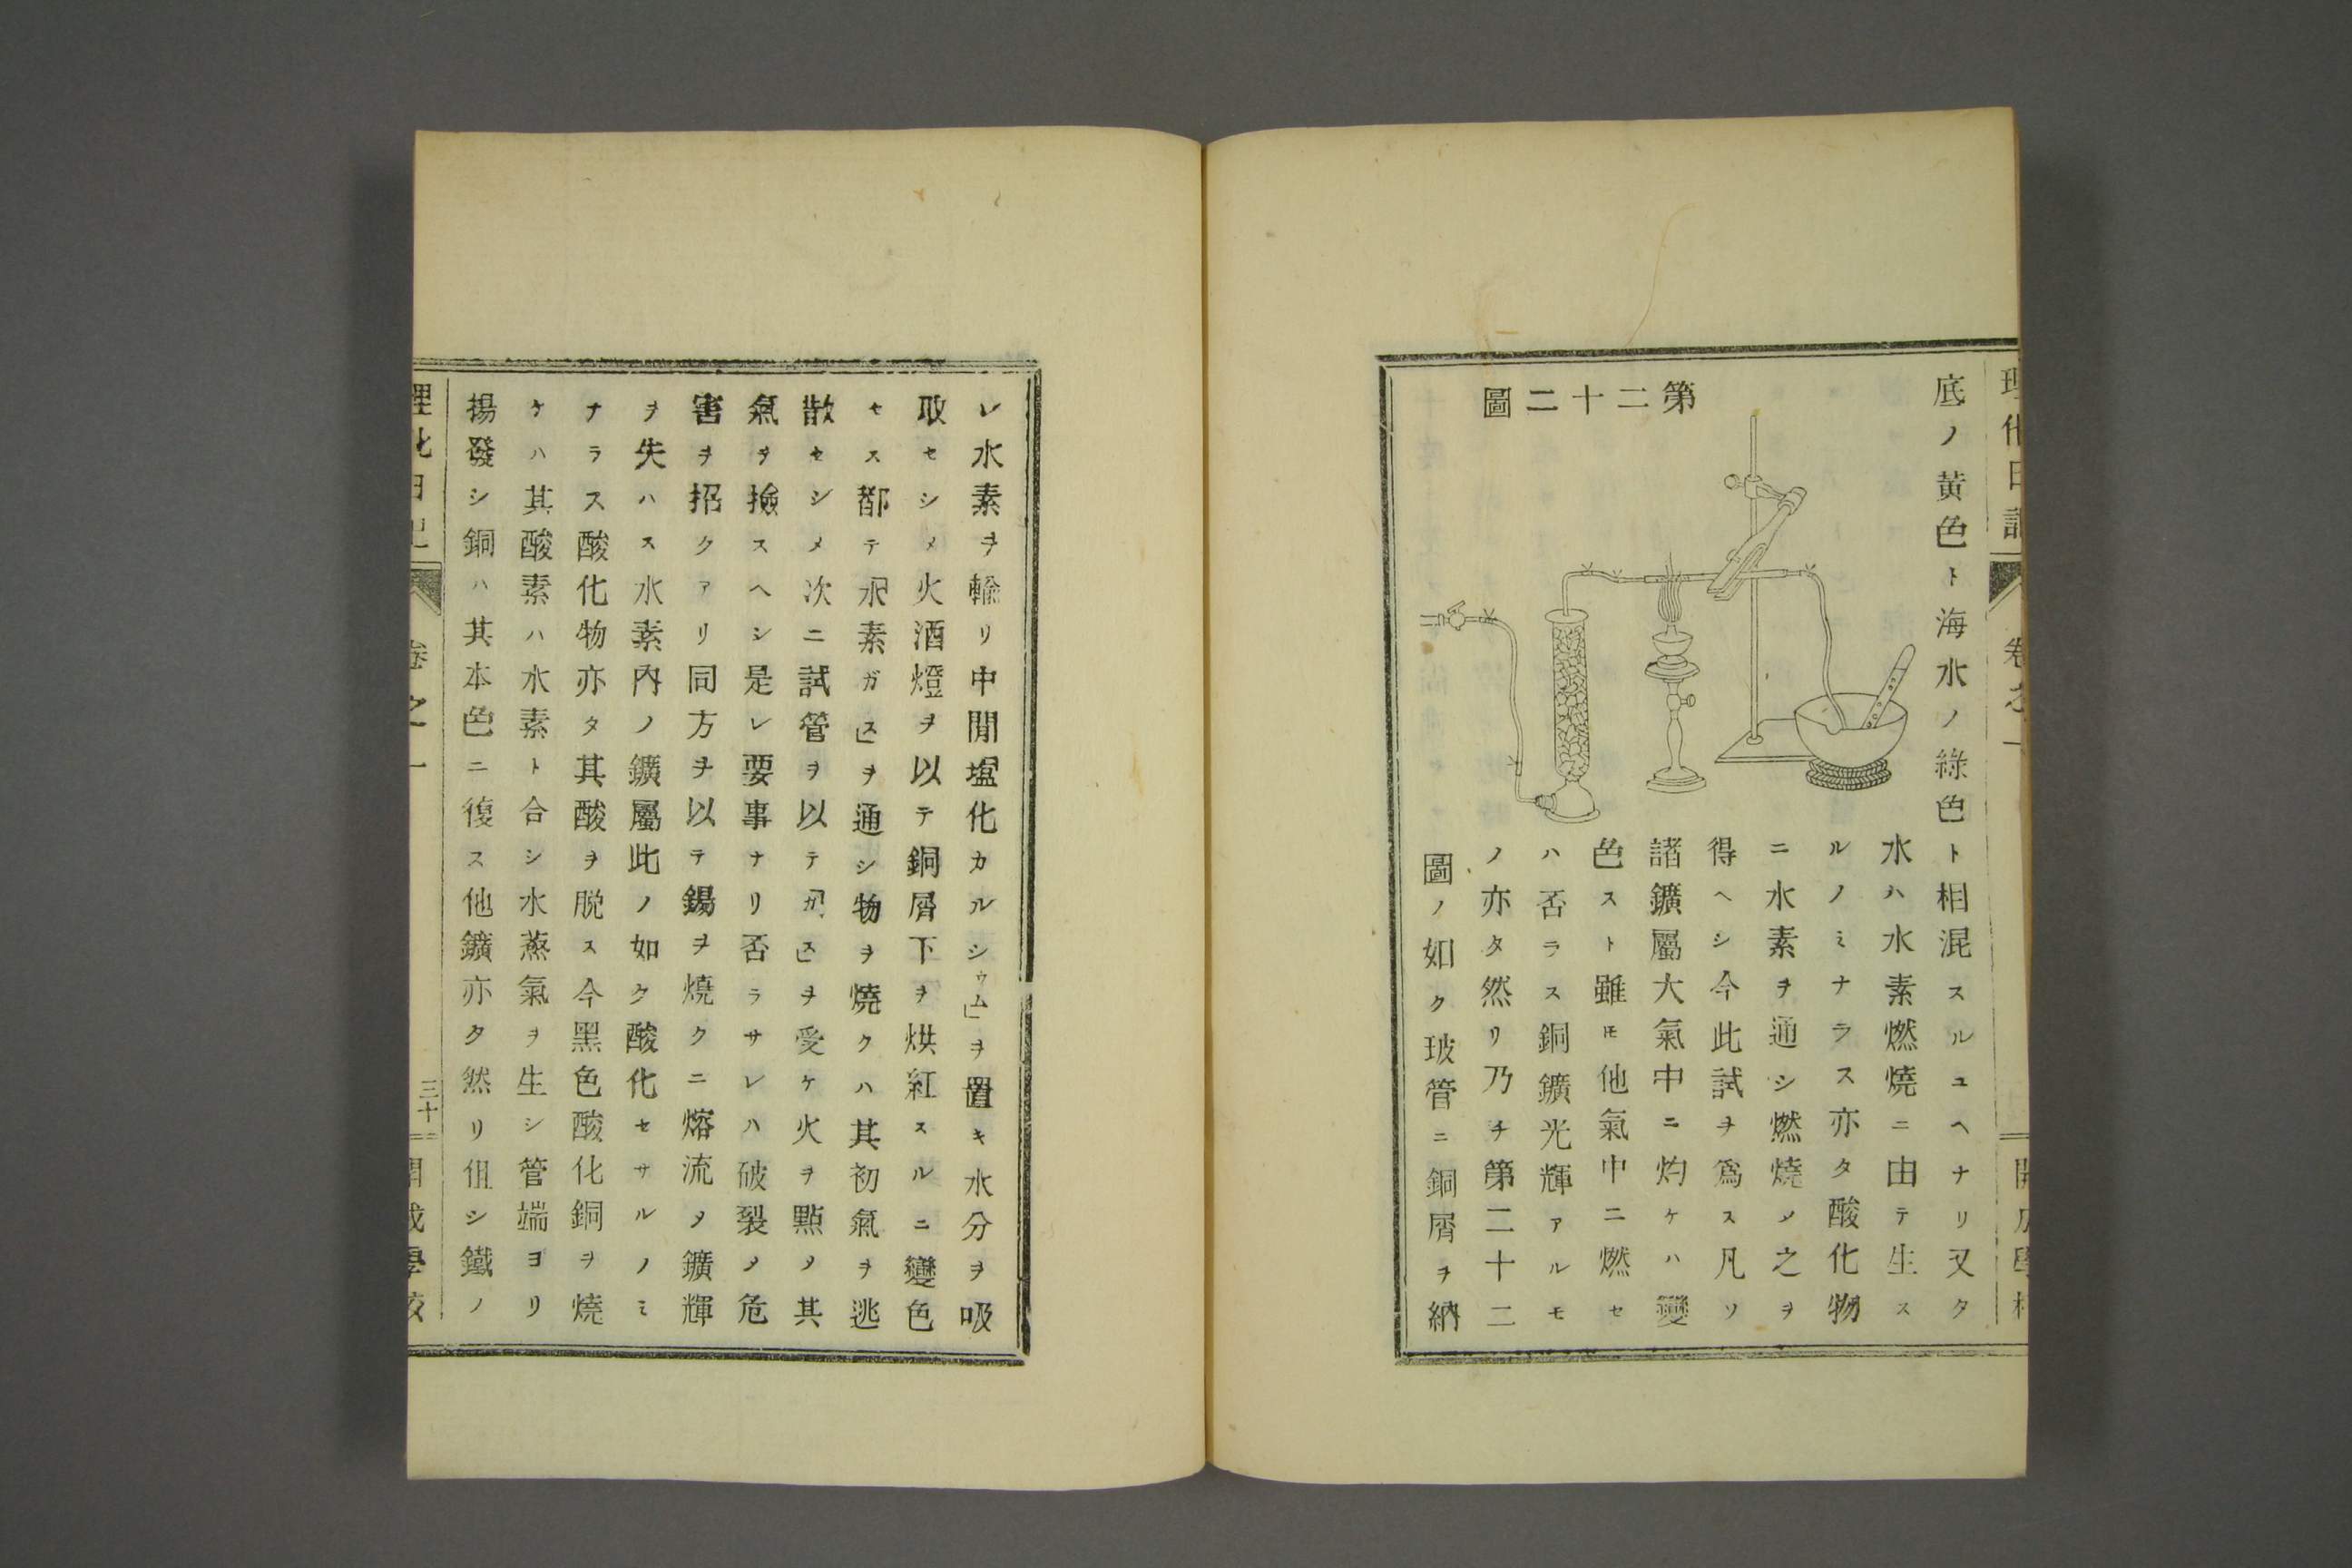 底ノ黄色ト海水ノ綠色ト相混スルユヘナリ又タ
第二十二圖
水ハ水素燃燒ニ由テ生ス
ルノミナラス亦タ酸化物
ニ水素ヲ通シ燃燒メ之ヲ
得ヘシ今此試ヲ爲ス凡ソ
諸鑛屬大氣中ニ灼ケハ變
色スト雖𪜈他氣中ニ燃セ
ハ否ラス銅鑛光輝アルモ
ノ亦タ然リ乃チ第二十二
圖ノ如ク玻管ニ銅屑ヲ納
レ水素ヲ輸リ中間「塩化カルシウム」ヲ置キ水分ヲ吸
取セシメ火酒燈ヲ以テ銅屑下ヲ烘紅スルニ變色
セス都テ「水素ガス」ヲ通シ物ヲ燒クハ其初氣ヲ逃
散セシメ次ニ試管ヲ以テ「ガス」ヲ受ケ火ヲ點メ其
氣ヲ撿スヘシ是レ要事ナリ否ラサレハ破裂メ危
害ヲ招クアリ同方ヲ以テ錫ヲ燒クニ熔流メ鑛輝
ヲ失ハス水素內ノ鑛屬此ノ如ク酸化セサルノミ
ナラス酸化物亦タ其酸ヲ脱ス今黑色酸化銅ヲ燒
ケハ其酸素ハ水素ト合シ水蒸氣ヲ生シ管端ヨリ
揚發シ銅ハ其本色ニ復ス他鑛亦タ然リ但シ鐵ノ
卷之一
三十